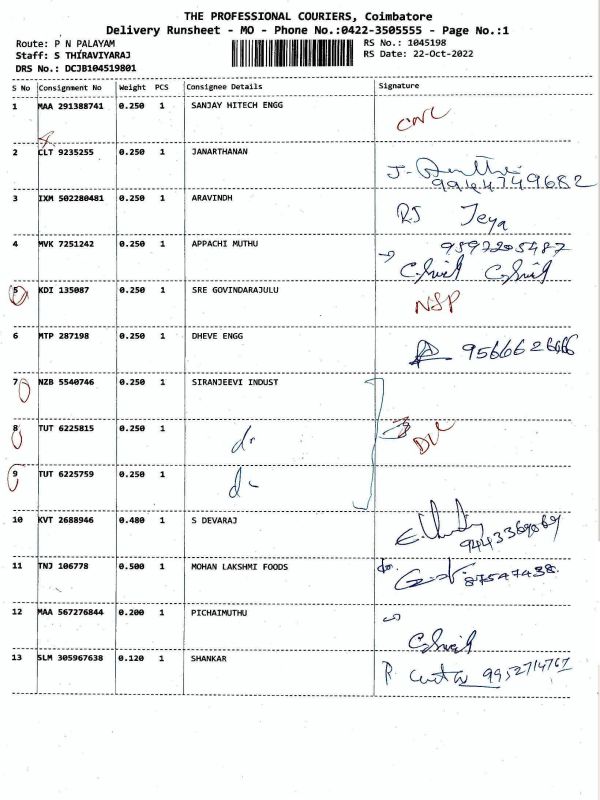 THE PROFESSIONAL COURIERS, Coimbatore
Delivery Runsheet - MO - Phone No.:0422-3505555 - Page No.:1
Route: P N PALAYAM
Staff: S THIRAVIYARAJ
DRS No.: DCJB104519801
RS No.: 1045198
RS Date: 22-Oct-2022
S No Consignment No Weight PCS Consignee Details Signature
1 MAA 291388741 0.250 1 SANJAY HITECH ENGG CNC
2 CLT 9235255 0.250 1 JANARTHANAN
9944749682
3 IXM 502280481 0.250 1 ARAVINDH RJ Jeya
4 MVK 7251242 0.250 1 APPACHI MUTHU 9597205487
5 KDI 135087 0.250 1 SRE GOVINDARAJULU NSP
6 MTP 287198 0.250 1 DHEVE ENGG
7 NZB 5540746 0.250 1 SIRANJEEVI INDUST
8 TUT 6225815 0.250 1 do DLC
9 TUT 6225759 0.250 1 do
10 KVT 2688946 0.480 1 S DEVARAJ
11 TNJ 106778 0.500 1 MOHAN LAKSHMI FOODS
12 MAA 567276844 0.200 1 PICHAIMUTHU
13 SLM 305967638 0.120 1 SHANKAR 9952714767